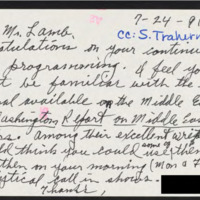 7-24-91
Mr. Lamb,
cc: S. Trahern
tulations on your continue
programming. I feel yo
t be familiar with the
al available on the Middle E
ashington Report on Middle Eas
rs. Among their excellent wri
ld think you could use some of them
then on your morning (Mon & F
itical call in shows.
Thanks,